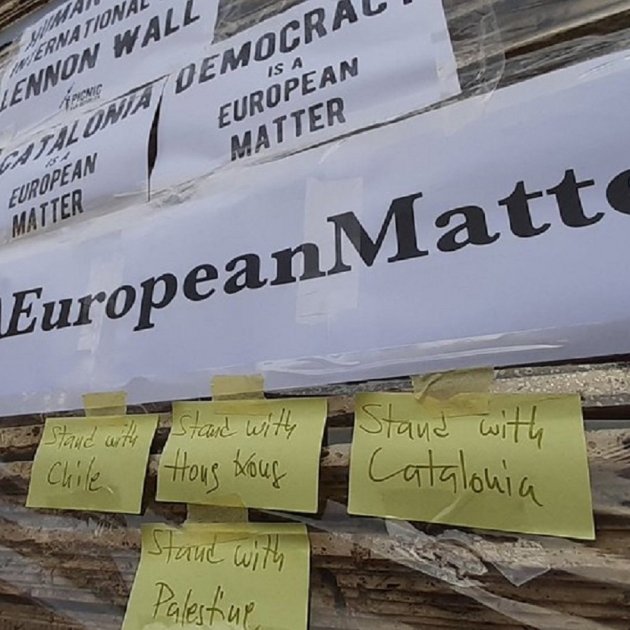 HUMAN
INTERNATIONAL
LENNON WALL
PICNIC
CATALONIA
IS A
EUROPEAN
MATTER
DEMOCRACY
IS A
EUROPEAN
MATTER
AEuropeanMatte
Stand with
Chile
Stand with
Hong Kong
Stand with
Catalonia
Stand with
Palestine